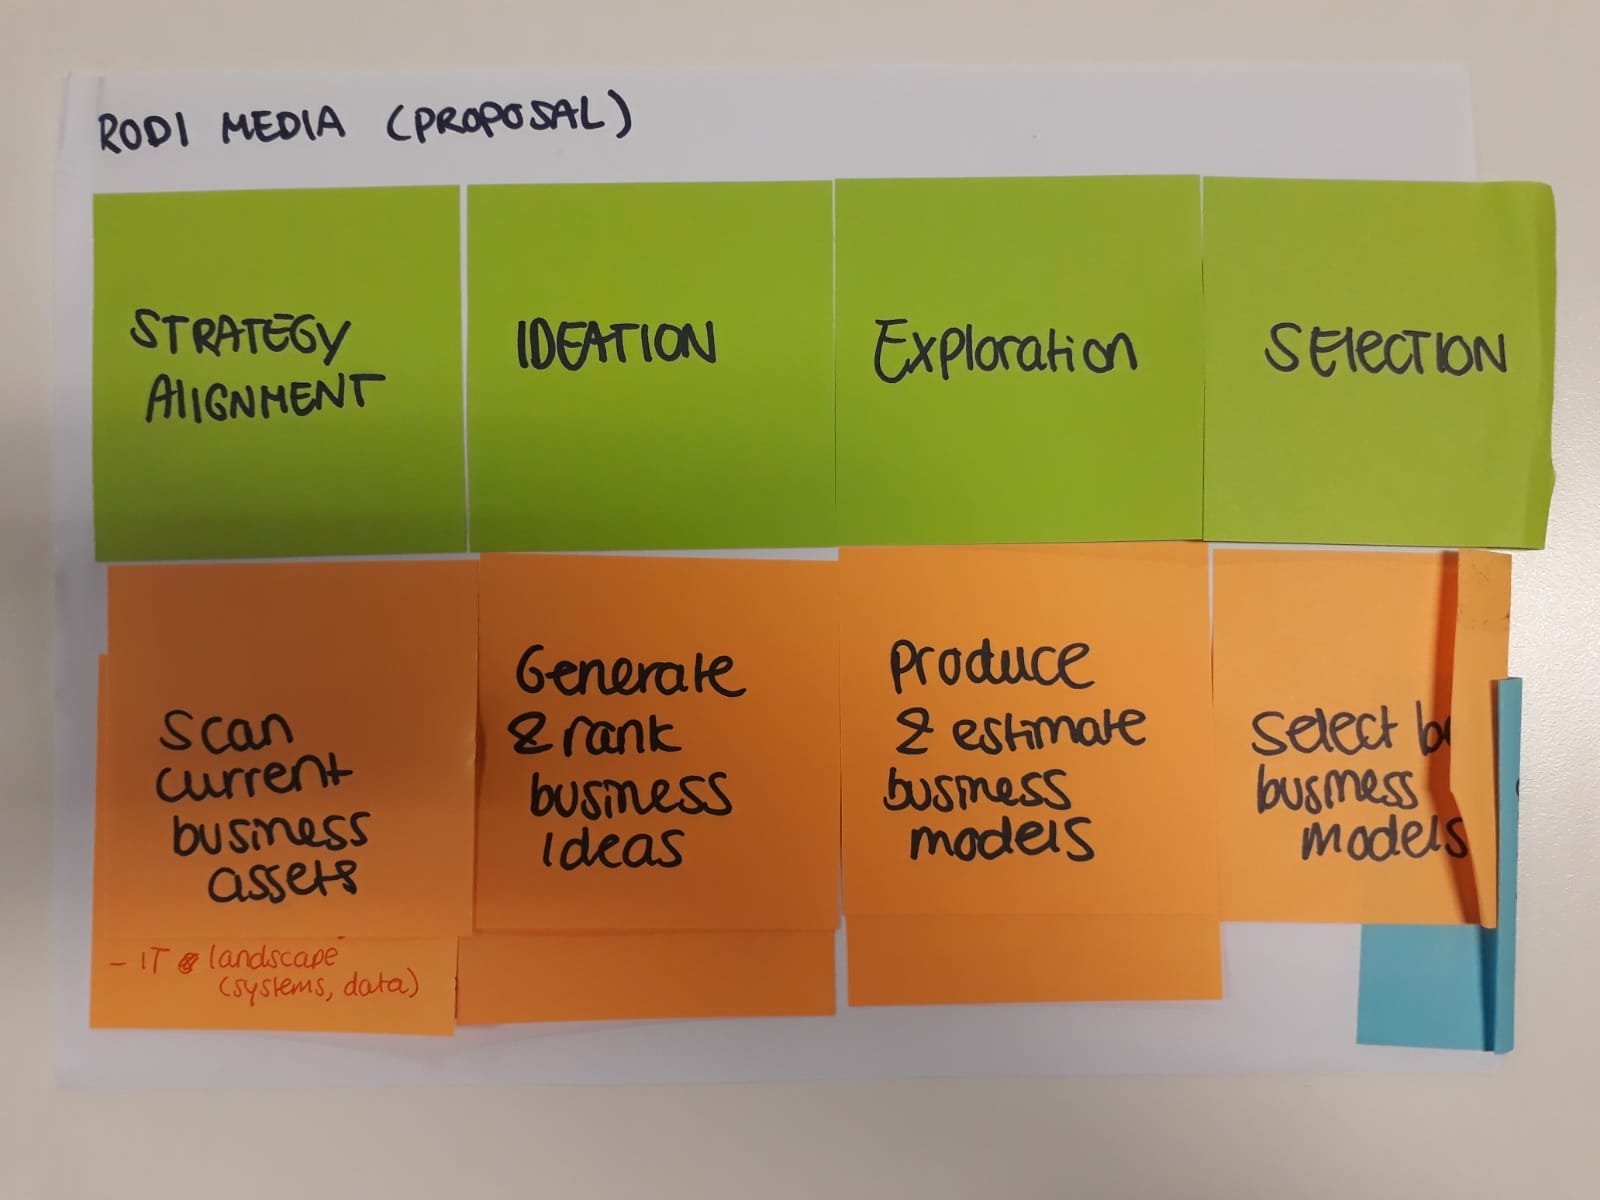 RODI MEDIA (PROPOSAL)
STRATEGY
AlIGNMENT
IDEATION
Exploration
SElECTION
Scan
current
business
assets
- IT landscape
(systems, data)
Generate
& rank
business
Ideas
produce
& estimate
business
models
Select
business
models